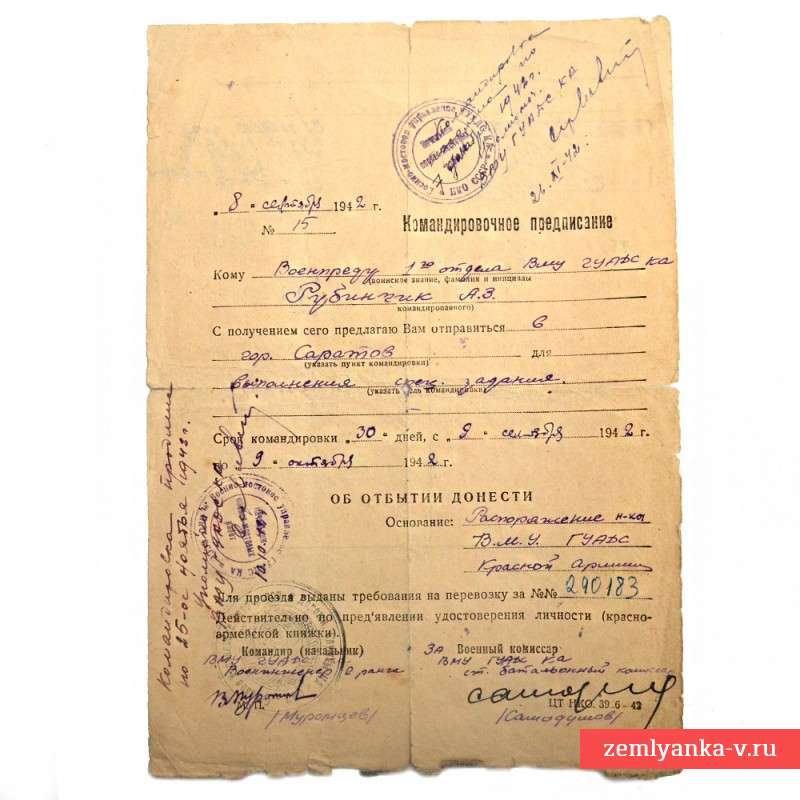 Командировка
по
1942 г.
ВМУ ГУАДС КА
26.XI-42.
"8" сентября 1942 г.
№ 15
Командировочное предписание
Кому Военпреду 1го отдела ВМУ ГУАДС КА
(воинское звание, фамилия и инициалы
Рубинчик А.З.
командированного)
С получением сего предлагаю Вам отправиться в
гор. Саратов для
(указать пункт командировки)
выполнения спец. задания.
(указать цель командировки)
Срок командировки "30" дней, с "9" сентября 1942 г.
по "9" октября 1942 г.
ОБ ОТБЫТИИ ДОНЕСТИ
Основание: Распоряжение н-ка
В.М.У. ГУАДС
Красной Армии
Для проезда выданы требования на перевозку за №№ 290183
Действительно по пред'явлении удостоверения личности (красно-
армейской книжки).
Командир (начальник)
ВМУ ГУАДС
Военинженер 2 ранга
М. П.
(Муромцов)
За Военный комиссар
ВМУ ГУАДС КА
ст. батальонный комиссар
ЦТ НКО. 39 6-42
Командировка продлена
по 25-ое ноября 1942 г.
ВМУ ГУАДС КА
zemlyanka-v.ru